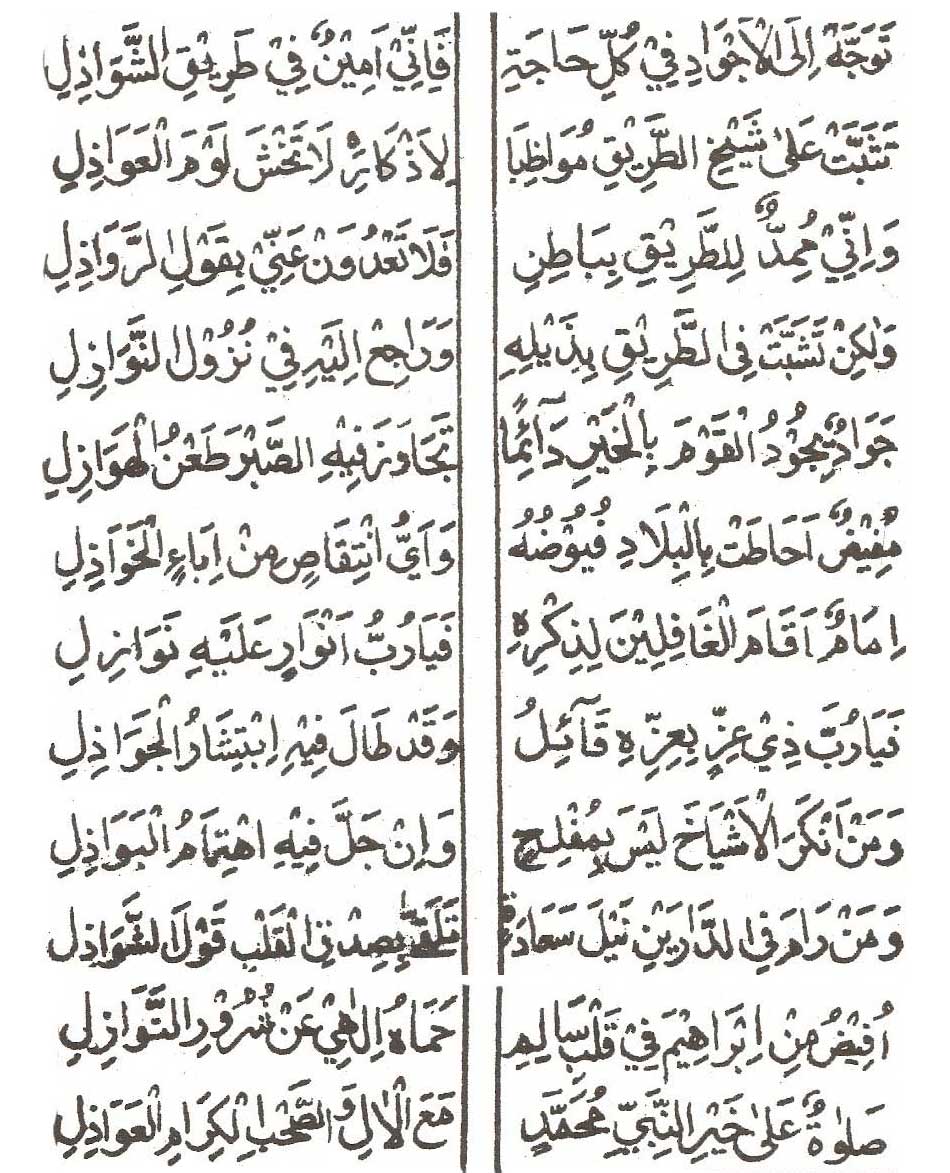 تَوَجَّهْ اِلَى الْاَجْوَادِ فِيْ كُلِّ حَاجَةٍ فَاِنِّيْ اَمِيْنٌ فِيْ طَرِيْقِ الشَّوَاذِلِ
تَثَبَّتْ عَلٰى شَيْخِ الطَّرِيْقِ مُوَاظِبَا لِاَذْكَارِهٖ لَا تَخْشَ لَوْمَ الْعَوَاذِلِ
وَاِنِّيْ مُمِدٌّ لِلطَّرِيْقِ بِبَاطِنِ فَلَا تَعْدُوَنْ عَنِّيْ بِقَوْلِ الرَّوَاذِلِ
وَلٰكِنْ تَشَبَّتْ فِى الطَّرِيْقِ بِذَيْلِهِ وَرَاجِعْ اِلَيْهِ فِيْ نُزُوْلِ النَّوَازِلِ
جَوَادٌ يَجُوْدُ الْقَوْمَ بِالْخَيْرِ دَآئِمًا تَجَاوَزَ فِيْهِ الصَّبْرَ طَعْنُ الْهَوَازِلِ
مُفِيْضٌ اَحَاطَتْ بِالْبِلَادِ فُيُوْضُهُ وَاَيُّ انْتِقَاصٍ مِنْ اِبَاءِ الْخَوَاذِلِ
اِمَامٌ اَقَامَ الْغَافِلِيْنَ لِذِكْرِهٖ فَيَا رُبَّ اَنْوَارٍ عَلَيْهِ نَوَازِلِ
فَيَارُبَّ ذِيْ عِزٍّ بِعِزِّهِ قَآئِلُ وَقَدْ طَالَ فِيْهِ اِبْتِشَارُ الْجَوَاذِلِ
وَمَنْ اَنْكَرَ الْاَشْيَاخَ لَيْسَ بِمُفْلِحٍ وَاِنْ جَلَّ فِيْهِ اهْتِمَامُ الْبَوَاذِلِ
وَمَنْ رَامَ فِى الدَّارَيْنِ نَيْلَ سَعَادَةٍ تَلَقّٰى بِصِدْقِ الْقَلْبِ قَوْلَ الشَّوَاذِلِ
اُفِيْضُ مِنْ اِبْرَاهِيْمَ فِيْ قَلْبِ سَالِمِ حَمَاهُ اِلٰهِيْ عَنْ شُرُوْرِ النَّوَازِلِ
صَلٰوةٌ عَلٰى خَيْرِ النَّبِيِّ مُحَمَّدٍ مَعَ الْاٰلِ وَالصَّحْبِ الْكِرَامِ الْعَوَاذِلِ